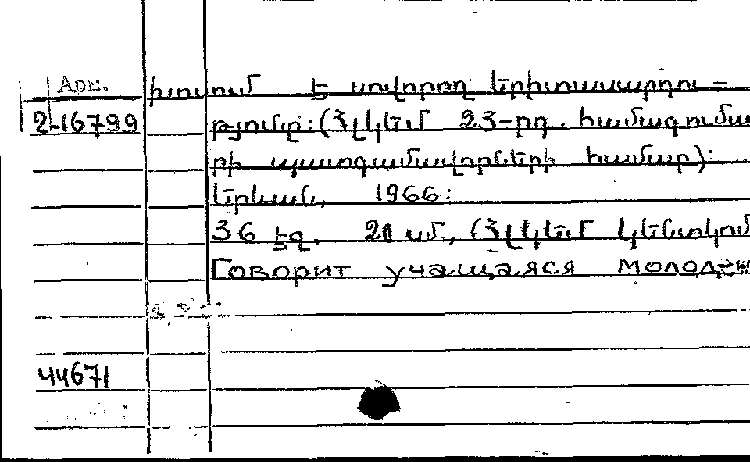 Арм. խոսում է սովորող երիտասարդու-
2-16799 թյունը: (ՀԼԿԵՄ 23-րդ. համագումա
րի պատգամավորների համար):
Երևան, 1966:
36 էջ. 21 սմ, (ՀԼԿԵՄ կենտկոմ
Говорит учащаяся молодеж
44671